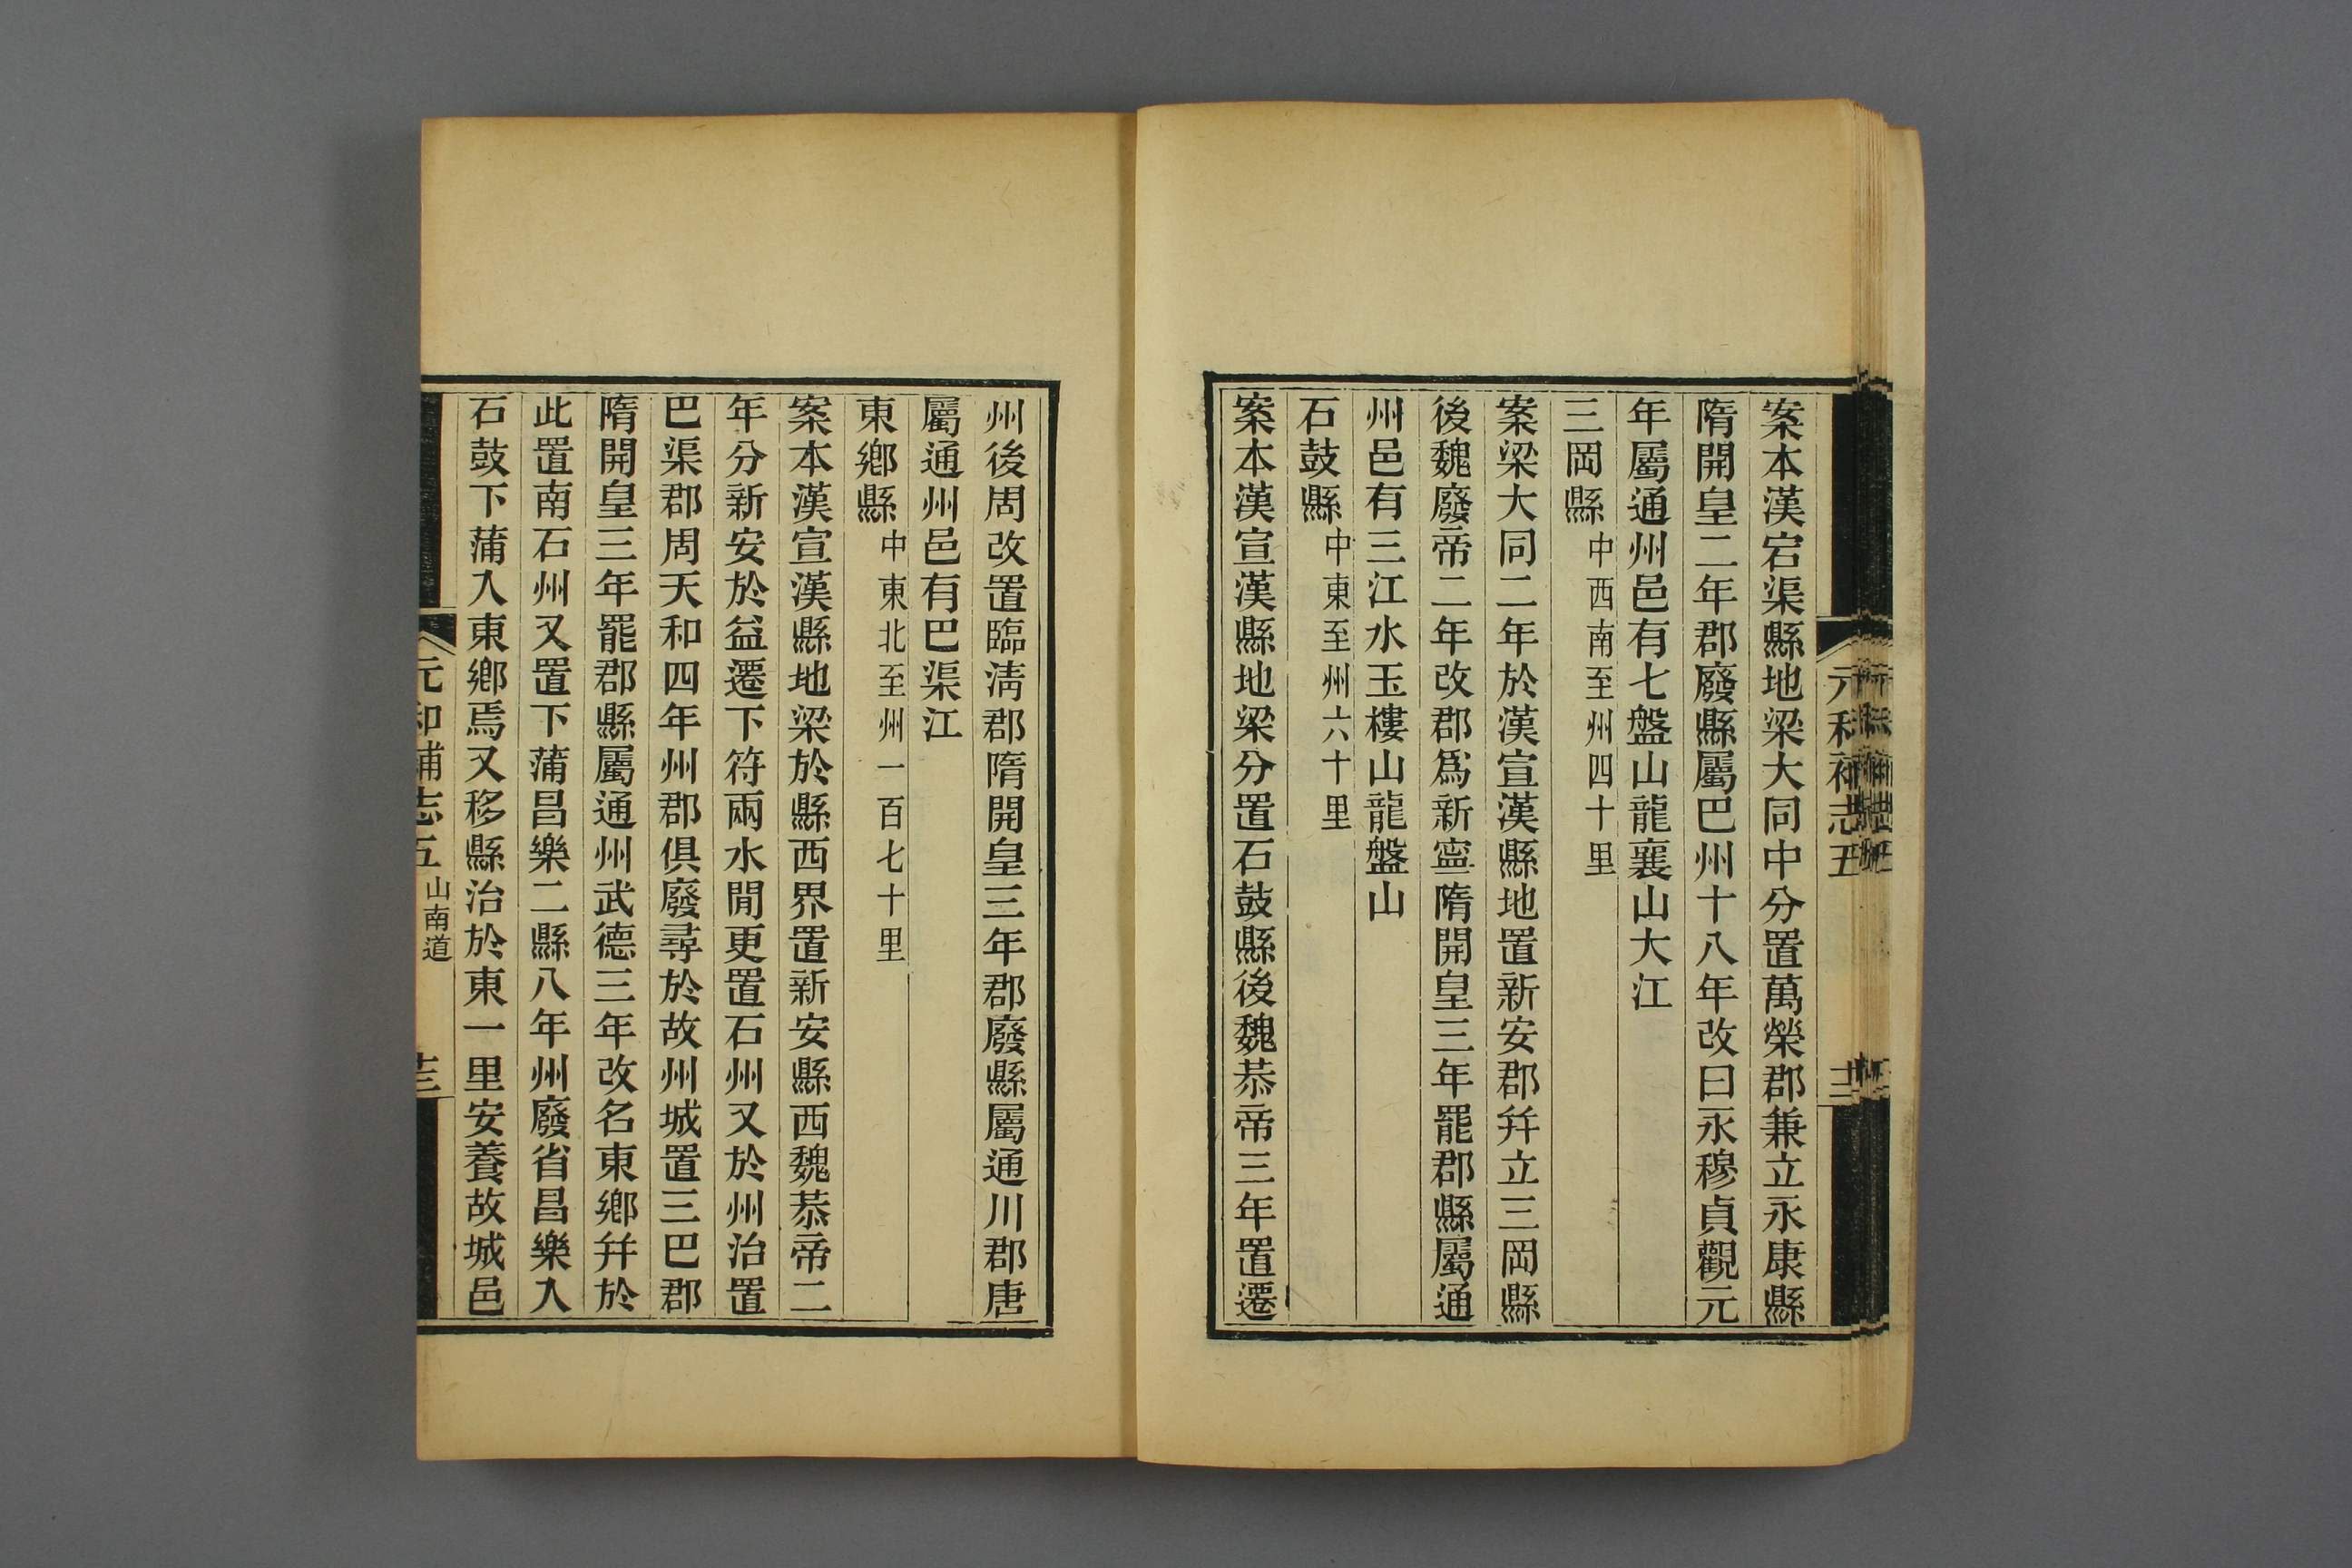 案本漢宕渠縣地梁大同中分置萬榮郡兼立永康縣
隋開皇二年郡廢縣屬巴州十八年改曰永穆貞觀元
年屬通州邑有七盤山龍襄山大江
三岡縣中西南至州四十里
案梁大同二年於漢宣漢縣地置新安郡幷立三岡縣
後魏廢帝二年改郡爲新寧隋開皇三年罷郡縣屬通
州邑有三江水玉樓山龍盤山
石鼓縣中東至州六十里
案本漢宣漢縣地梁分置石鼓縣後魏恭帝三年置遷
州後周改置臨淸郡隋開皇三年郡廢縣屬通川郡唐
屬通州邑有巴渠江
東鄉縣中東北至州一百七十里
案本漢宣漢縣地梁於縣西界置新安縣西魏恭帝二
年分新安於益遷下符兩水閒更置石州又於州治置
巴渠郡周天和四年州郡俱廢尋於故州城置三巴郡
隋開皇三年罷郡縣屬通州武德三年改名東鄉幷於
此置南石州又置下蒲昌樂二縣八年州廢省昌樂入
石鼓下蒲入東鄉焉又移縣治於東一里安養故城邑
元和補志五 山南道